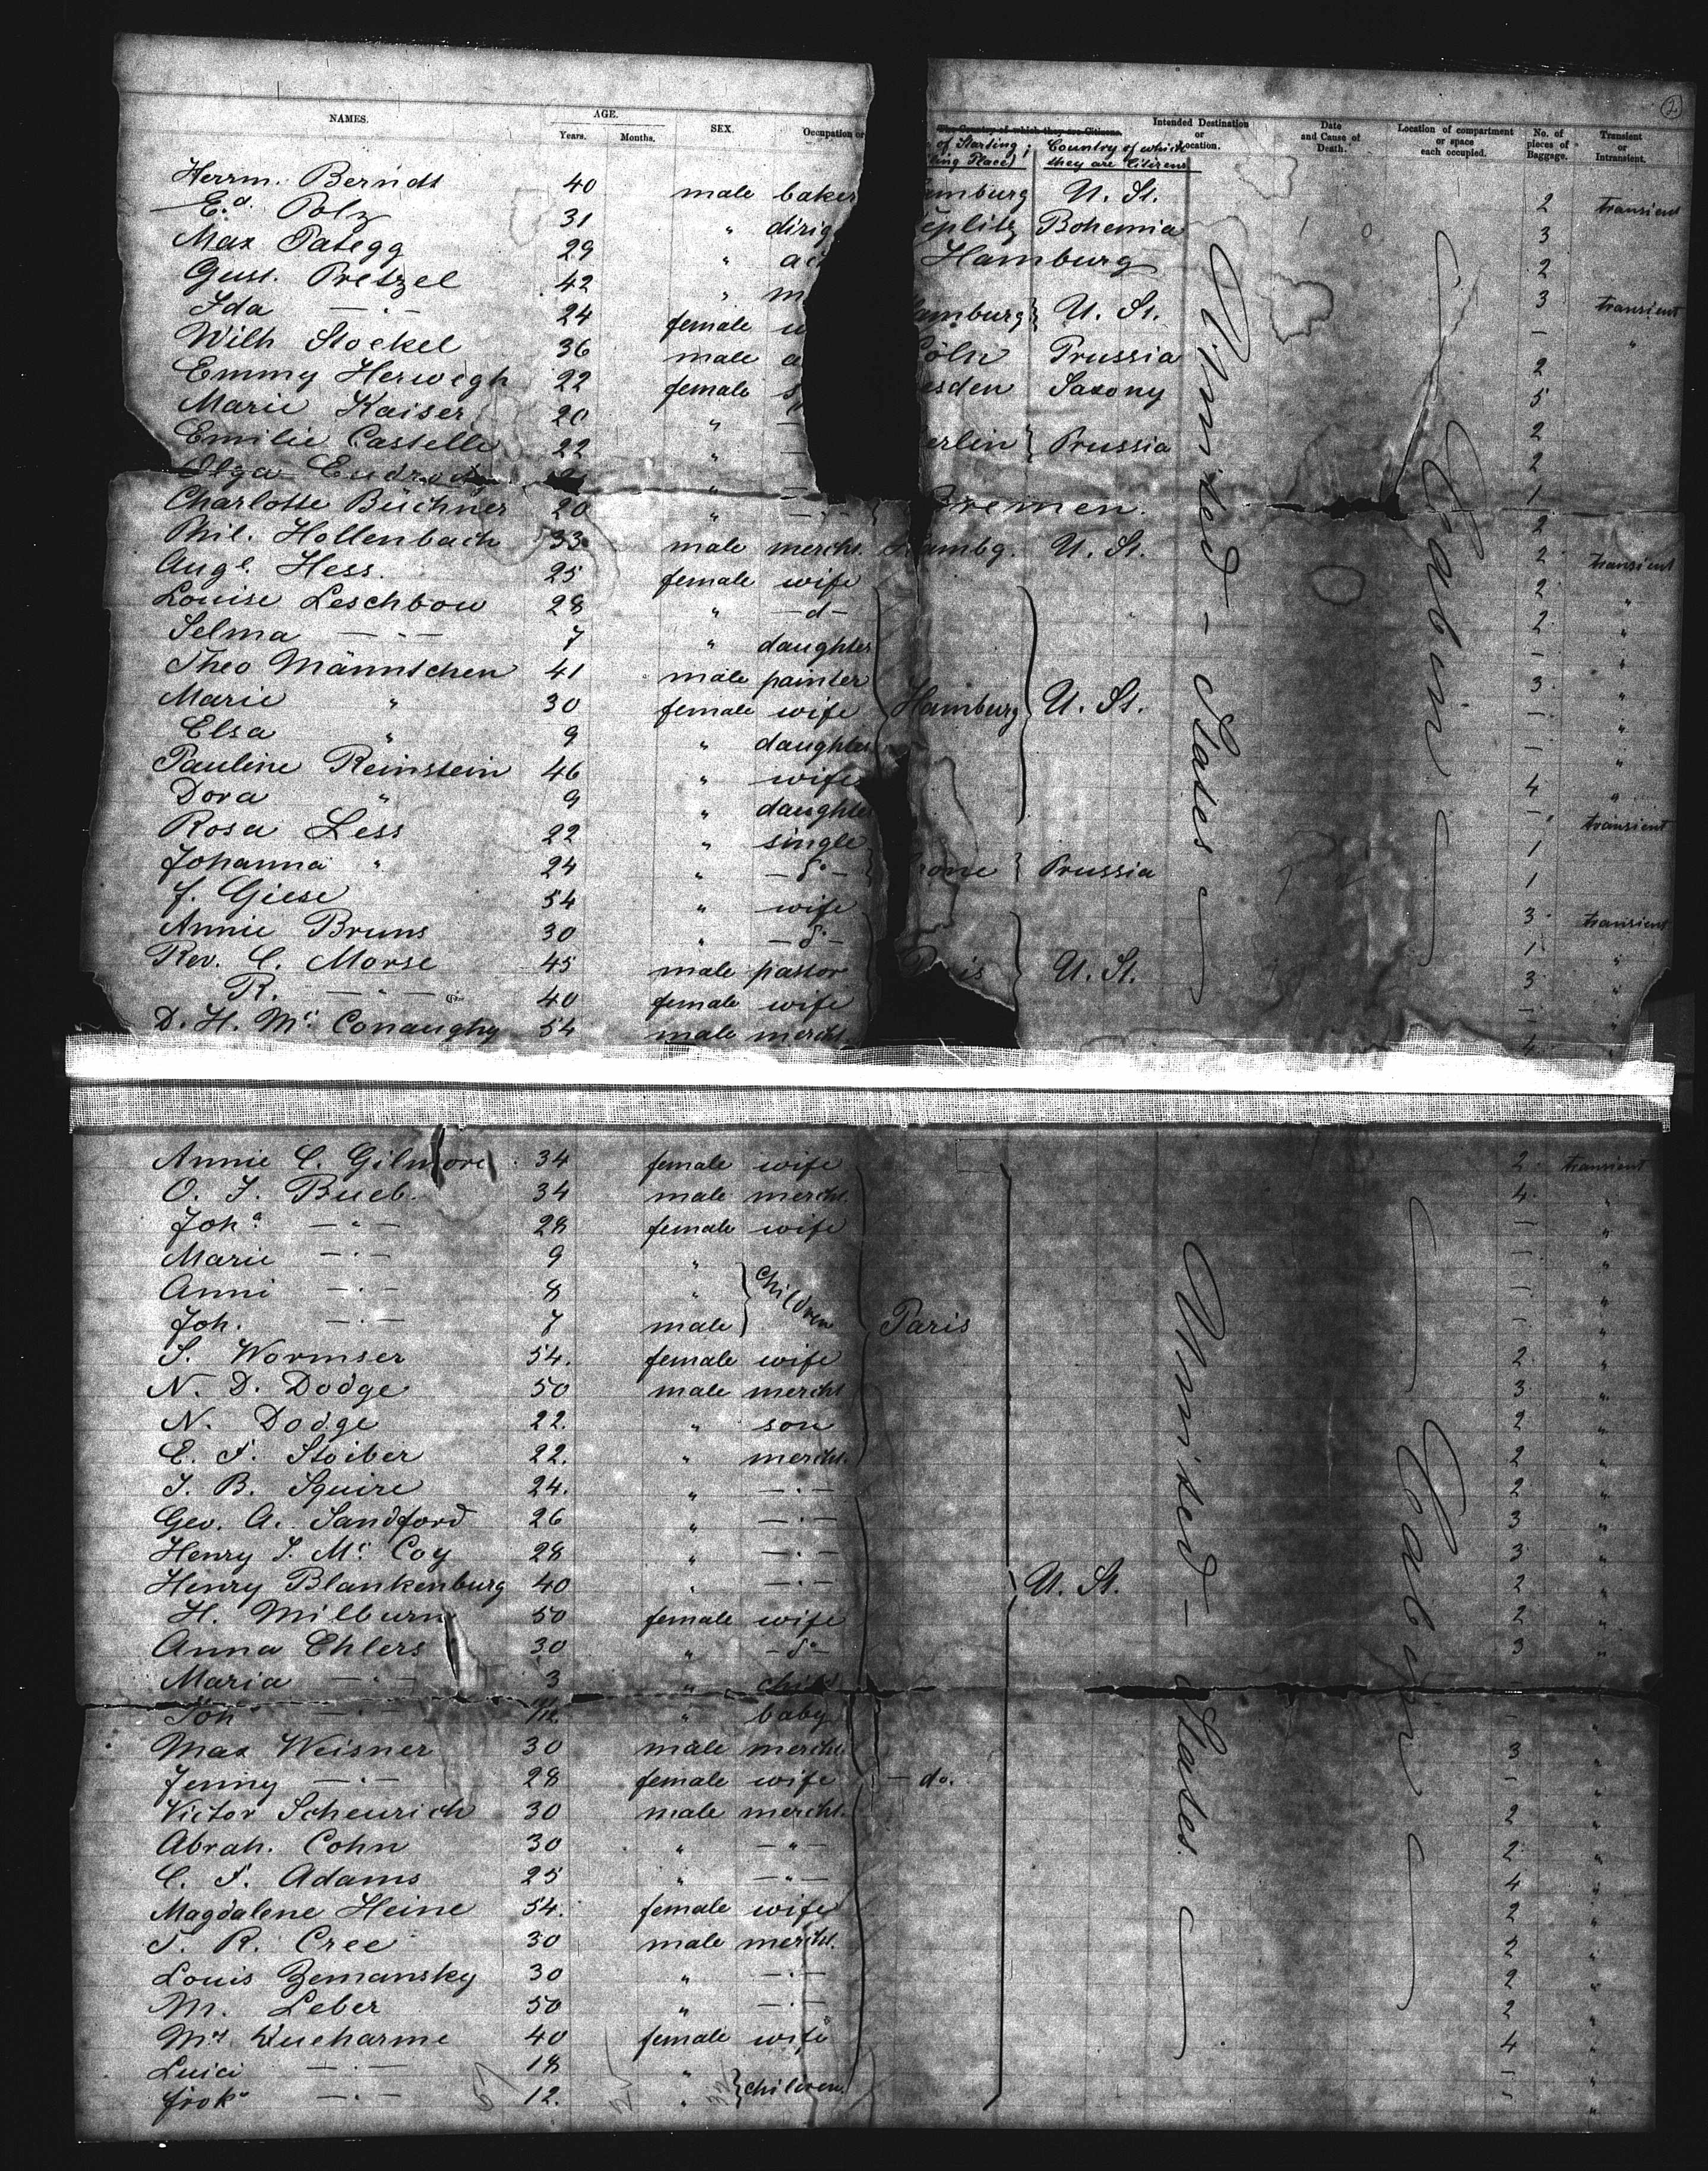 2
NAMES. AGE. Years. Months. SEX. Occupation or
The Country of which they are Citizens. Intended Destination or Location. Date and Cause of Death. Location of compartment or space each occupied. No. of pieces of Baggage. Transient or Intransient.
of Starting; Country of which they are Citizens
Herrm. Berndt 40 male baker amburg U. St. 2 transient
Ed. Polz 31 " dirig eplitz Bohemia 3
Max Pategg 29 " Hamburg 2
Gust. Pretzel 42 " m amburg } U. St. 3 transient
Ida — " — 24 female — "
Wilh Stockel 36 male Cöln Prussia 2
Emmy Herwegh 22 female esden Saxony 5
Marie Kaiser 20 " 2
Emilie Castelle 22 " erlin } Prussia 2
Olga " 1
Charlotte Büchner 20 " — " — Bremen. 2
Phil. Hollenbach 33 male mercht. Hambg. U. St. 2 transient
Aug. Hess. 25 female wife 2 "
Louise Leschbow 28 " — d — 2 "
Selma — " — 7 " daughter — "
Theo Männtchen 41 male painter 3 "
Marie " 30 female wife Hamburg U. St. — "
Elsa " 9 " daughter — "
Pauline Reinstein 46 " wife 4 "
Dora " 9 " daughter — transient
Rosa Less 22 " single 1
Johanna " 24 " — do — rone } Prussia 1
F. Giese 54 " wife 3 transient
Annie Bruns 30 " — do — 1 "
Rev. C. Morse 45 male pastor Paris U. St. 3 "
R. — " — 40 female wife — "
D. H. Mc Conaughy 54 male mercht. 4 "
United - States
Cabin
Annie C. Gilmore 34 female wife 2 transient
O. J. Bueb. 34 male mercht. 4 "
Joha — " — 28 female wife — "
Marie — " — 9 " — "
Anni — " — 8 " } children — "
Joh. — " — 7 male Paris — "
S. Wormser 54. female wife 2 "
N. D. Dodge 50 male mercht 3 "
N. Dodge 22. " son 2 "
E. F. Stoiber 22. " mercht. 2 "
J. B. Squire 24. " — " — 2 "
Geo. A. Sandford 26 " — " — 3 "
Henry S. Mc Coy 28 " — " — 3 "
Henry Blankenburg 40 " — " — U. St. 2 "
H. Milburn 50 female wife 2 "
Anna Ehlers 30 " — do — 3 "
Maria — " — 3 " child
Joh — " — " baby — "
Max Weisner 30 male mercht. 3 "
Jenny — " — 28 female wife — do. — "
Victor Scheurich 30 male mercht. 2 "
Abrah. Cohn 30 " — " — 2 "
C. F. Adams 25 " — " — 4 "
Magdalene Heine 54. female wife 2 "
J. R. Cree 30 male mercht. 2 "
Louis Zemansky 30 " — " — 2 "
M. Leber 50 " — " — 2 "
Mrs Ducharme 40 female wife 4 "
Luici — " — 18 " } children. — "
— " — 12. " — "
United - States
Cabin